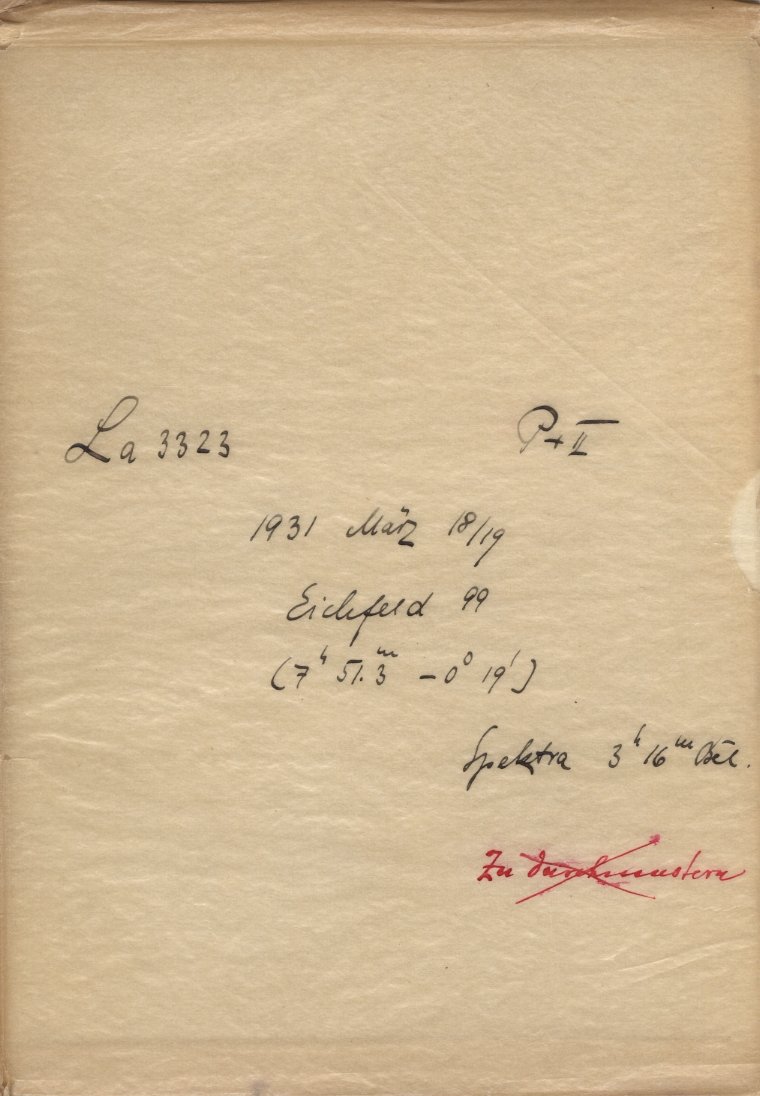 La 3323 P+II
1931 März 18/19
Eichfeld 99
(7ʰ 51.3ᵐ −0⁰ 19')
Spektra 3ʰ 16ᵐ Bel.
Zu durchmustern